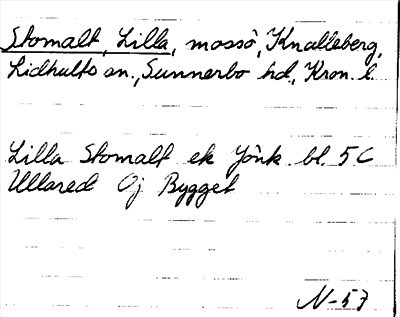 Stomalt, Lilla, mossö, Knalleberg,
Lidhults sn., Sunnerbo hd., Kron. l.
Lilla Stomalt ek Jönk bl. 5 C
Ullared Öj Bygget
N-57